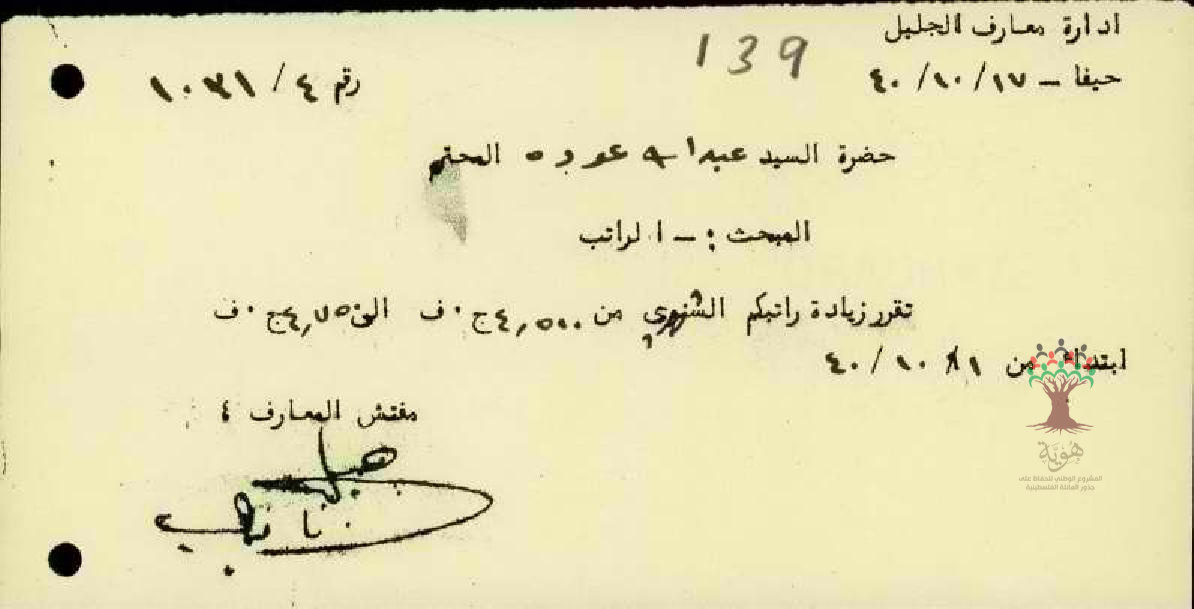 ادارة معارف الجليل
139
حيفا – ١٧/ ١٠/ ٤٠
رقم ٤ / ١٠٣١
حضرة السيد عبدا عوده المحترم
المبحث : – الراتب
تقرر زيادة راتبكم الشهري من ٤٫٥٠٠ ج ٠ ف الى ٤٫٧٥٠ ج ٠ ف
ابتداء من ١/ ١٠ / ٤٠
مفتش المعارف ٤
هُوِيَّة
المشروع الوطني للحفاظ على
جذور العائلة الفلسطينية